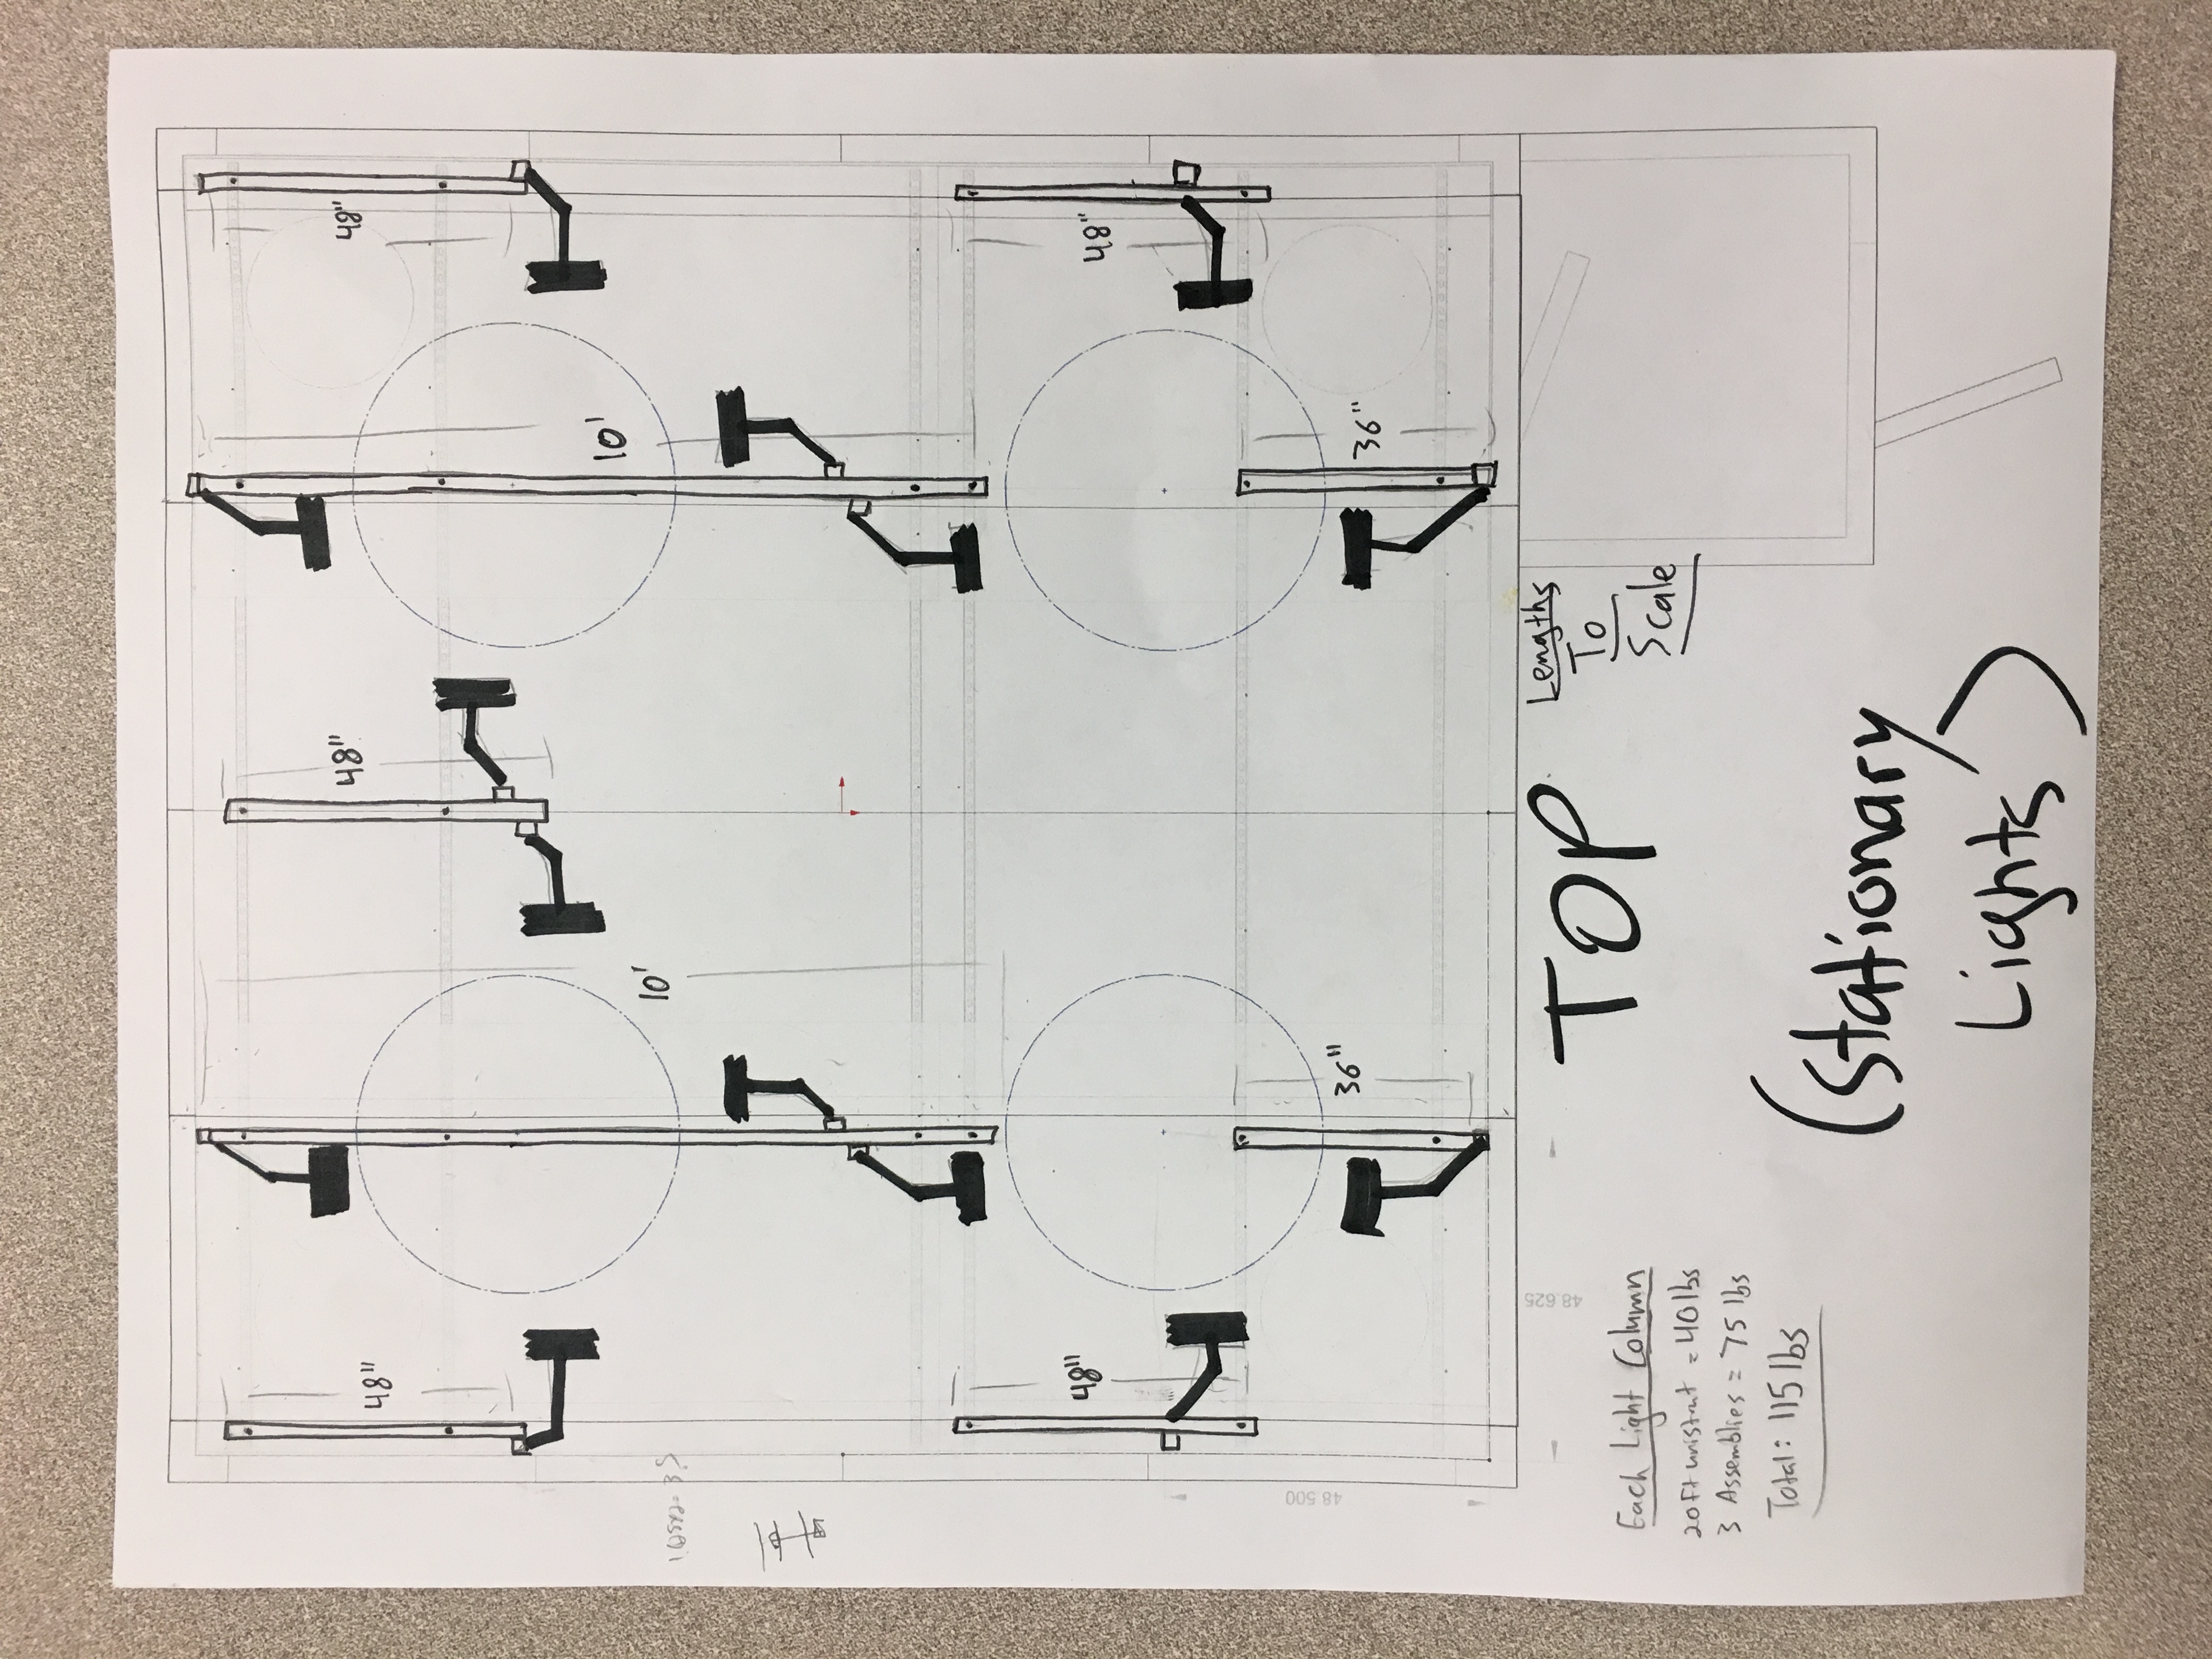 48"
48"
48"
10'
10'
48"
48"
36"
36"
48.500
48.625
TOP
Lengths
To
Scale
Each Light Column
20Ft unistrut = 40 lbs
3 Assemblies = 75 lbs
Total: 115 lbs
(Stationary
Lights)